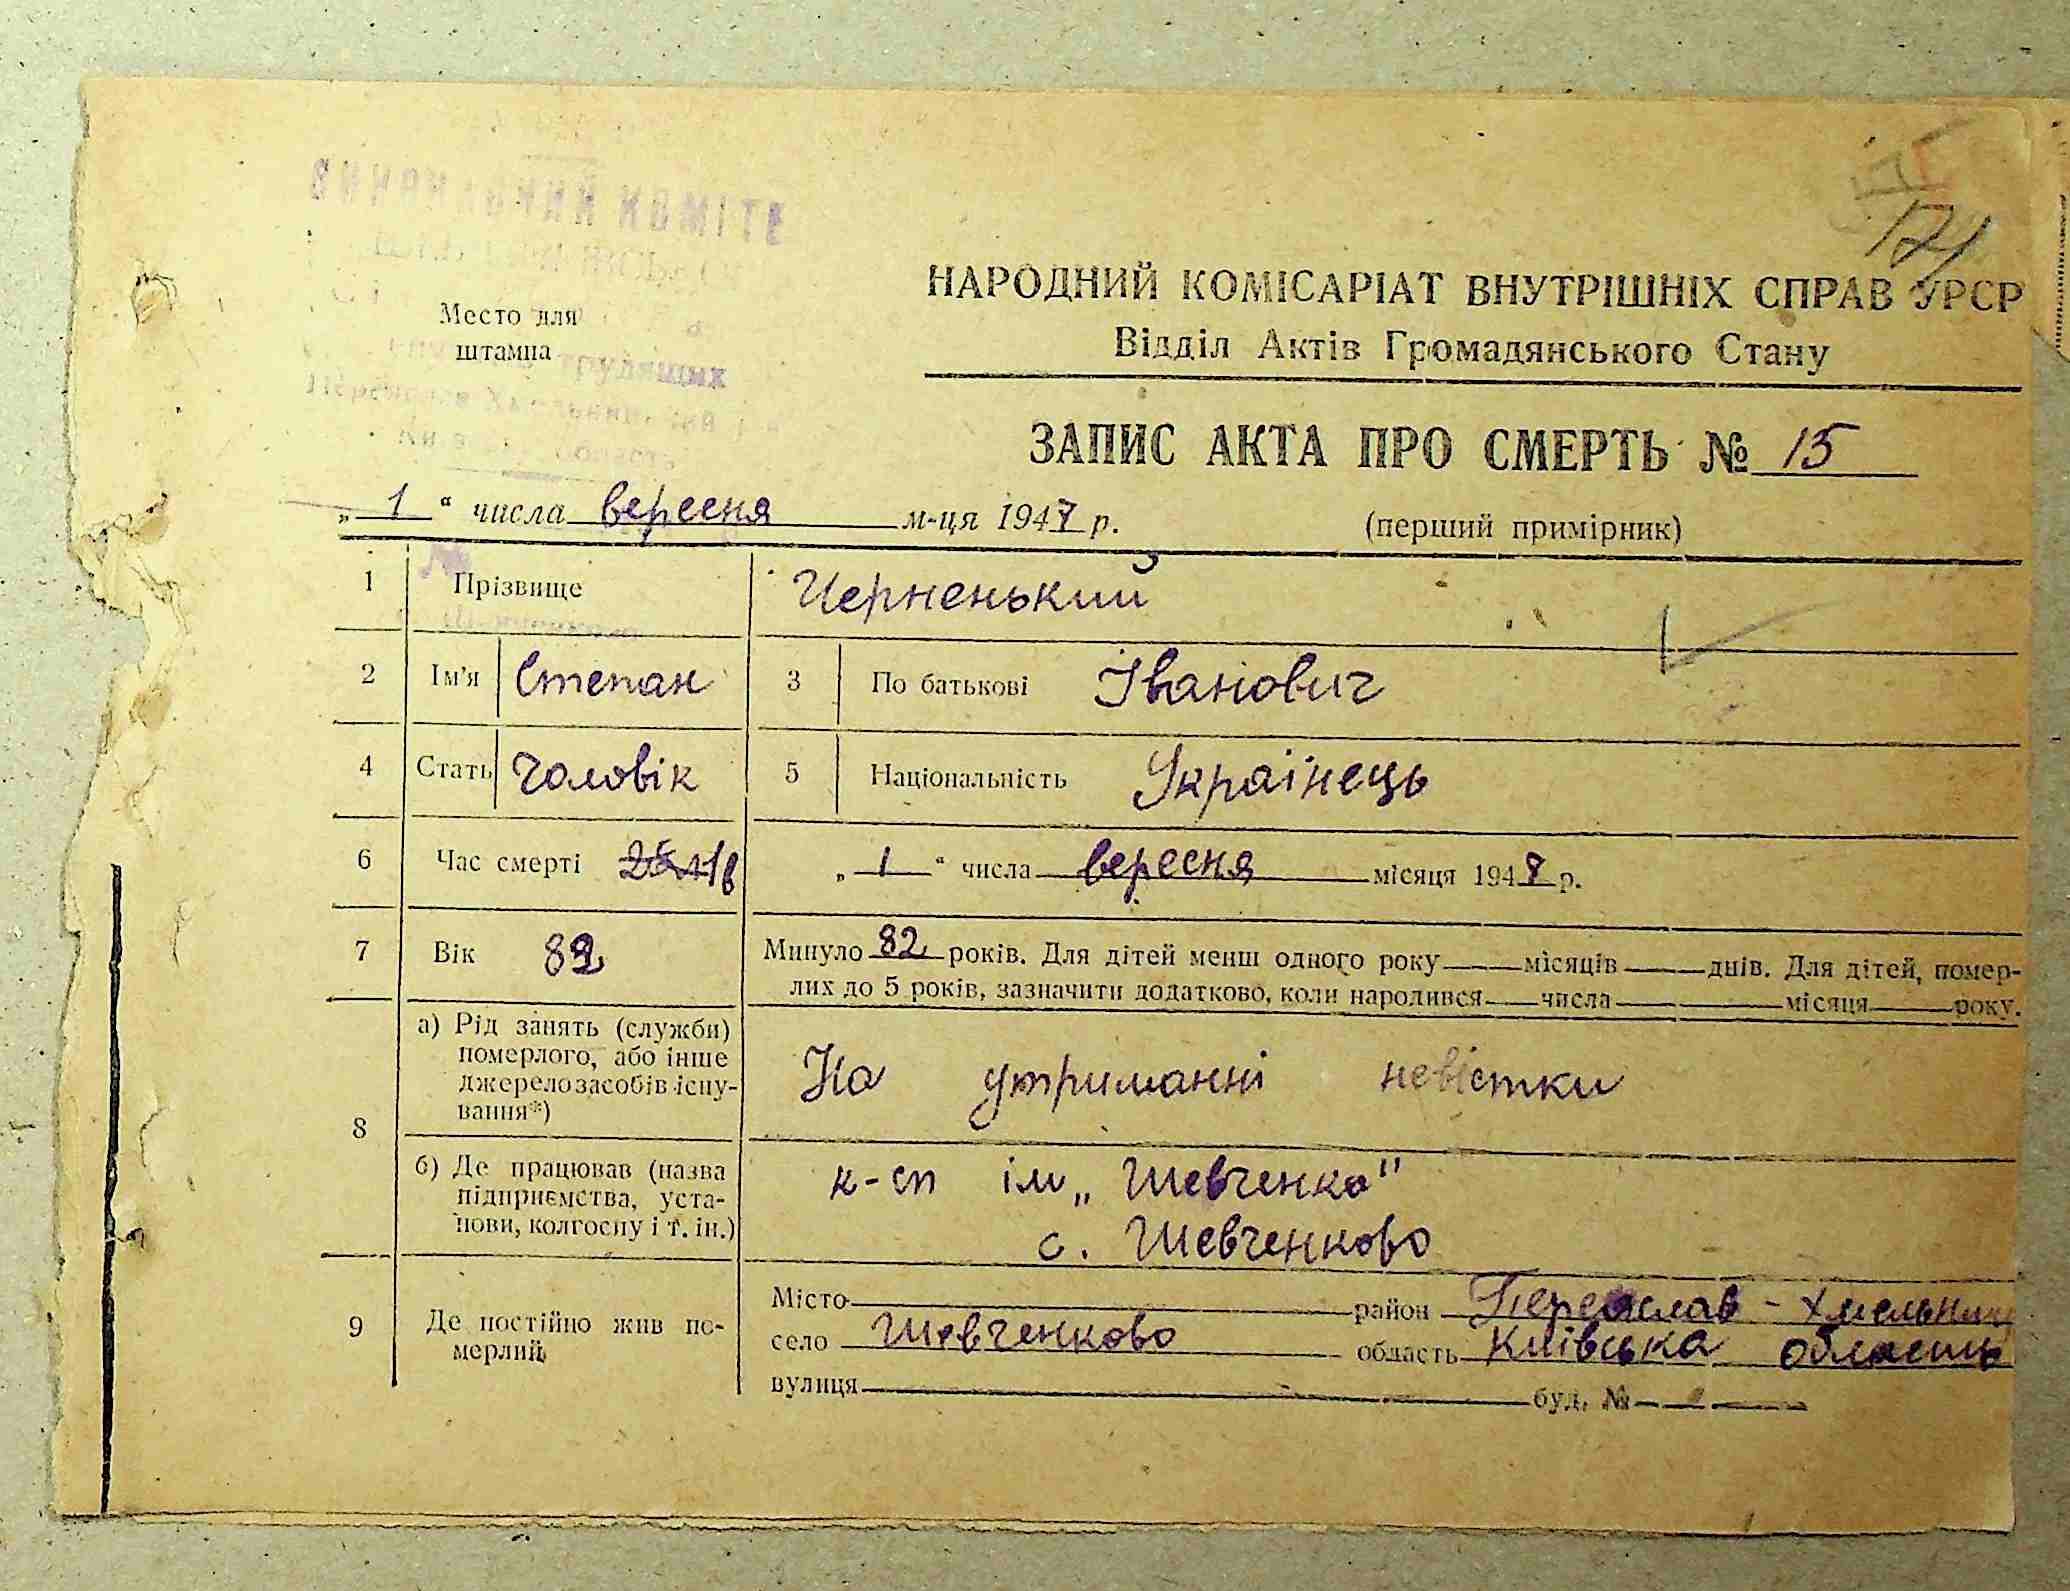 ВИКОНАВЧИЙ КОМІТЕ
Место для
штампа
трудящих
121
НАРОДНИЙ КОМІСАРІАТ ВНУТРІШНІХ СПРАВ УРСР
Відділ Актів Громадянського Стану
ЗАПИС АКТА ПРО СМЕРТЬ № 15
„ 1 “ числа вересня м-ця 1947 р. (перший примірник)
1 Прізвище Черненький
2 Ім'я Степан 3 По батькові Іванович
4 Стать чоловік 5 Національність Українець
6 Час смерті „ 1 “ числа вересня місяця 1947 р.
7 Вік 82 Минуло 82 років. Для дітей менш одного року місяців днів. Для дітей, помер-
лих до 5 років, зазначити додатково, коли народився числа місяця року.
8 а) Рід занять (служби)
померлого, або інше
джерело засобів існу-
вання*)
На утриманні невістки
б) Де працював (назва
підприємства, уста-
нови, колгоспу і т. ін.)
к-сп ім „Шевченко"
с. Шевченково
9 Де постійно жив по-
мерлий
Місто район Переяслав-Хмельниц
село Шевченково область Київська область
вулиця буд. №